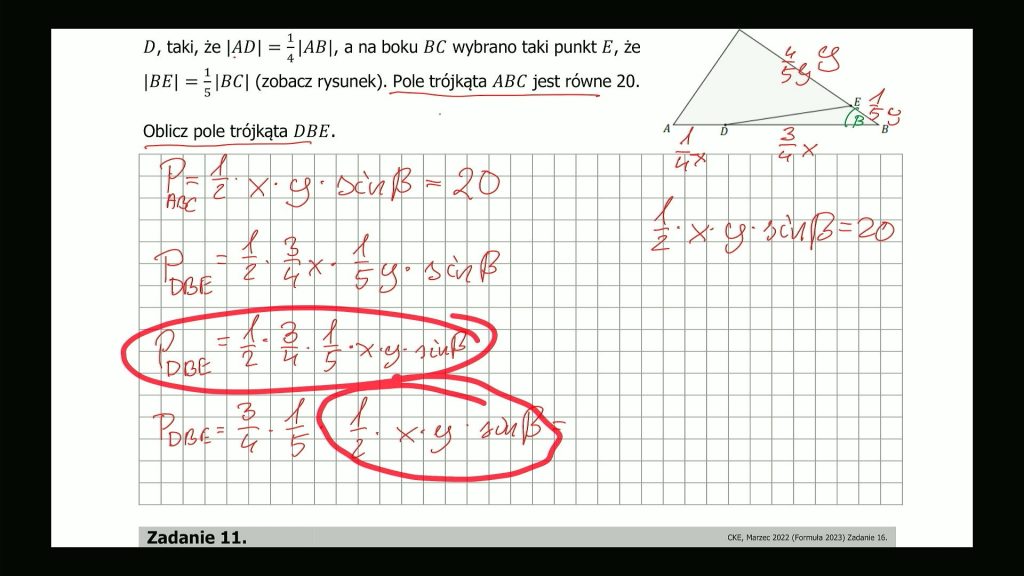 D, taki, że |AD| = 1/4|AB|, a na boku BC wybrano taki punkt E, że
|BE| = 1/5|BC| (zobacz rysunek). Pole trójkąta ABC jest równe 20.
Oblicz pole trójkąta DBE.
4/5 y y
E 1/5 y
β
A D B
1/4 x 3/4 x
P ABC = 1/2 · x · y · sinβ = 20
1/2 · x · y · sinβ = 20
P DBE = 1/2 · 3/4 x · 1/5 y · sinβ
P DBE = 1/2 · 3/4 · 1/5 · x · y · sinβ
P DBE = 3/4 · 1/5 · 1/2 · x · y · sinβ =
Zadanie 11.
CKE, Marzec 2022 (Formuła 2023) Zadanie 16.